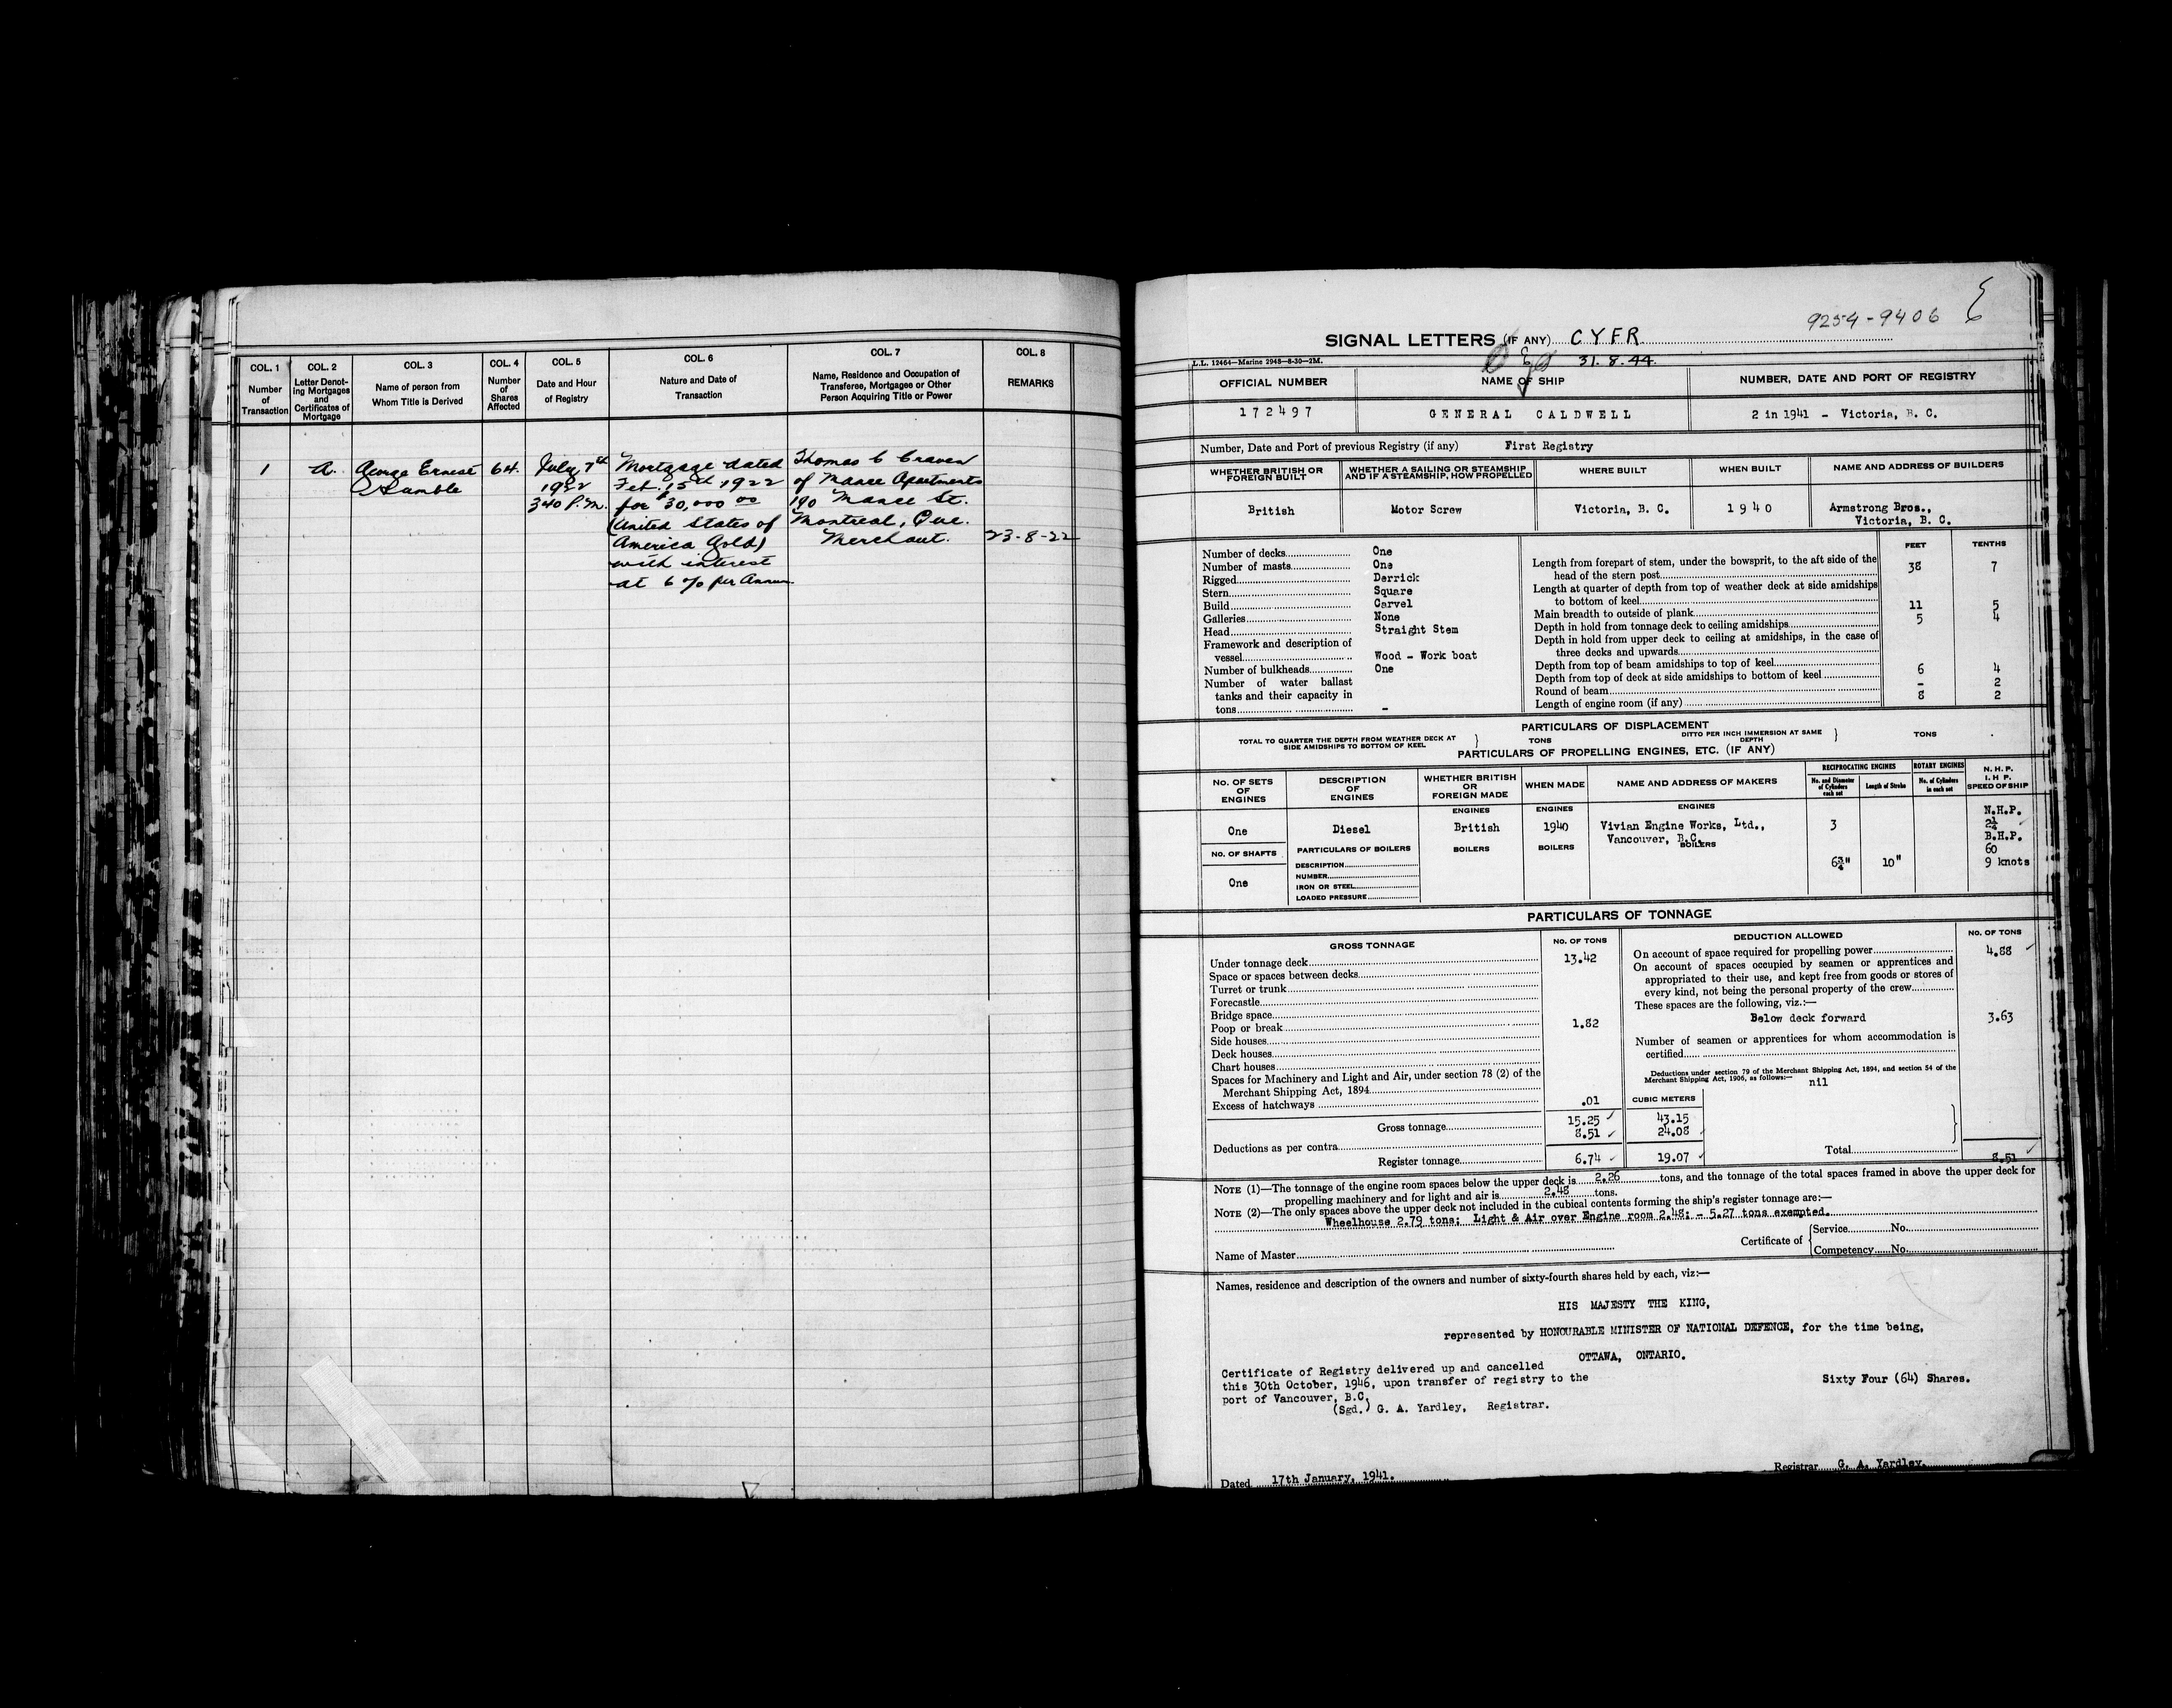 COL. 1
Number
of
Transaction
COL. 2
Letter Denot-
ing Mortgages
and
Certificates of
Mortgage
COL. 3
Name of person from
Whom Title is Derived
COL. 4
Number
of
Shares
Affected
COL. 5
Date and Hour
of Registry
COL. 6
Nature and Date of
Transaction
COL. 7
Name, Residence and Occupation of
Transferee, Mortgagee or Other
Person Acquiring Title or Power
COL. 8
REMARKS
1
A.
George Ernest
64.
July 7th
1922
340 P.M.
Mortgage dated
Feb. 15th 1922
for $30,000 00
(United States of
America Gold)
with interest
at 6% per Annum
Thomas C Craven
of Mance Apartments
190 Mance St.
Montreal, Que.
Merchant.
23-8-22
9254-9406
SIGNAL LETTERS (IF ANY) CYFR
L.L. 12464—Marine 2948—8-30—2M.
31.8.44.
OFFICIAL NUMBER
NAME OF SHIP
NUMBER, DATE AND PORT OF REGISTRY
172497
GENERAL CALDWELL
2 in 1941 - Victoria, B. C.
Number, Date and Port of previous Registry (if any) First Registry
WHETHER BRITISH OR
FOREIGN BUILT
WHETHER A SAILING OR STEAMSHIP
AND IF A STEAMSHIP, HOW PROPELLED
WHERE BUILT
WHEN BUILT
NAME AND ADDRESS OF BUILDERS
British
Motor Screw
Victoria, B. C.
1940
Armstrong Bros.,
Victoria, B. C.
Number of decks One
Number of masts One
Rigged Derrick
Stern Square
Build Carvel
Galleries None
Head Straight Stem
Framework and description of
vessel Wood - Work boat
Number of bulkheads One
Number of water ballast
tanks and their capacity in
tons -
FEET TENTHS
Length from forepart of stem, under the bowsprit, to the aft side of the
head of the stern post 38 7
Length at quarter of depth from top of weather deck at side amidships
to bottom of keel
Main breadth to outside of plank 11 5
Depth in hold from tonnage deck to ceiling amidships 5 4
Depth in hold from upper deck to ceiling at amidships, in the case of
three decks and upwards
Depth from top of beam amidships to top of keel
Depth from top of deck at side amidships to bottom of keel 6 4
Round of beam - 2
Length of engine room (if any) 8 2
PARTICULARS OF DISPLACEMENT
TOTAL TO QUARTER THE DEPTH FROM WEATHER DECK AT
SIDE AMIDSHIPS TO BOTTOM OF KEEL } TONS
DITTO PER INCH IMMERSION AT SAME
DEPTH } TONS
PARTICULARS OF PROPELLING ENGINES, ETC. (IF ANY)
NO. OF SETS
OF
ENGINES
DESCRIPTION
OF
ENGINES
WHETHER BRITISH
OR
FOREIGN MADE
WHEN MADE
NAME AND ADDRESS OF MAKERS
RECIPROCATING ENGINES
No. and Diameter
of Cylinders
each set
Length of Stroke
ROTARY ENGINES
No. of Cylinders
in each set
N. H. P.
I. H P.
SPEED OF SHIP
ENGINES
ENGINES
ENGINES
One
Diesel
British
1940
Vivian Engine Works, Ltd.,
Vancouver, B.C.
3
6¾"
10"
N.H.P.
2¼
B.H.P.
60
9 knots
NO. OF SHAFTS
One
PARTICULARS OF BOILERS
BOILERS
BOILERS
BOILERS
DESCRIPTION
NUMBER
IRON OR STEEL
LOADED PRESSURE
PARTICULARS OF TONNAGE
GROSS TONNAGE
NO. OF TONS
Under tonnage deck 13.42
Space or spaces between decks
Turret or trunk
Forecastle
Bridge space
Poop or break 1.82
Side houses
Deck houses
Chart houses
Spaces for Machinery and Light and Air, under section 78 (2) of the
Merchant Shipping Act, 1894
Excess of hatchways .01
CUBIC METERS
Gross tonnage 15.25 43.15
Deductions as per contra 8.51 24.08
Register tonnage 6.74 19.07
DEDUCTION ALLOWED
NO. OF TONS
On account of space required for propelling power 4.88
On account of spaces occupied by seamen or apprentices and
appropriated to their use, and kept free from goods or stores of
every kind, not being the personal property of the crew
These spaces are the following, viz.:—
Below deck forward 3.63
Number of seamen or apprentices for whom accommodation is
certified
Deductions under section 79 of the Merchant Shipping Act, 1894, and section 54 of the
Merchant Shipping Act, 1906, as follows:—
nil
Total 8.51
NOTE (1)—The tonnage of the engine room spaces below the upper deck is 2.26 tons, and the tonnage of the total spaces framed in above the upper deck for
propelling machinery and for light and air is 2.48 tons.
NOTE (2)—The only spaces above the upper deck not included in the cubical contents forming the ship's register tonnage are:—
Wheelhouse 2.79 tons; Light & Air over Engine room 2.48; - 5.27 tons exempted.
Name of Master
Certificate of { Service No.
Competency No.
Names, residence and description of the owners and number of sixty-fourth shares held by each, viz:—
HIS MAJESTY THE KING,
represented by HONOURABLE MINISTER OF NATIONAL DEFENCE, for the time being,
OTTAWA, ONTARIO.
Certificate of Registry delivered up and cancelled
this 30th October, 1946, upon transfer of registry to the
port of Vancouver, B.C.
(Sgd.) G. A. Yardley, Registrar.
Sixty Four (64) Shares.
Dated 17th January, 1941.
Registrar G. A. Yardley.